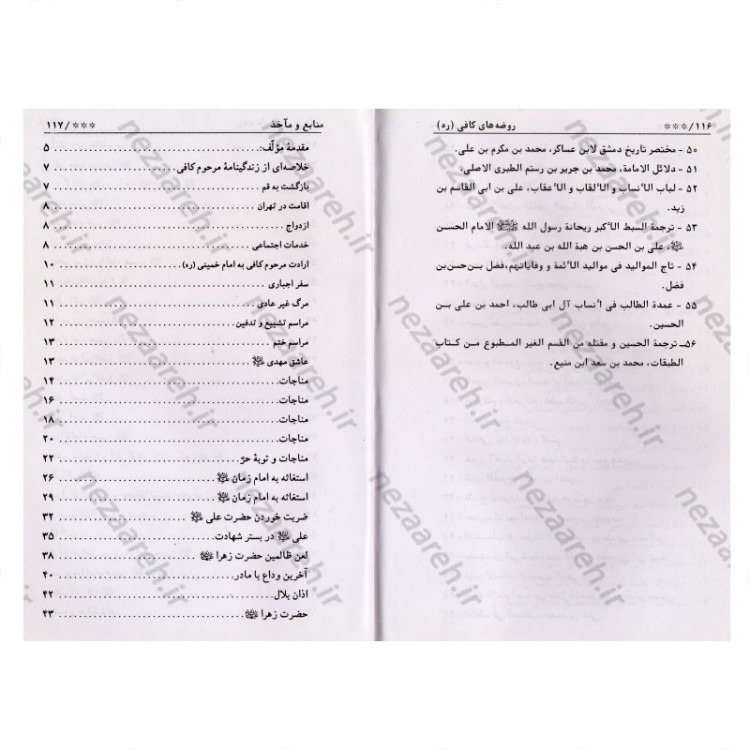 ۱۱۶/*** روضه‌های کافی (ره)
۵۰ - مختصر تاریخ دمشق لابن عساکر، محمد بن مکرم بن علی.
۵۱ - دلائل الامامة، محمد بن جریر بن رستم الطبری الاصلی.
۵۲ - لباب الأنساب و الألقاب و الأعقاب، علی بن ابی القاسم بن
زید.
۵۳ - ترجمة السبط الأکبر ریحانة رسول الله ﷺ الامام الحسن
، علی بن الحسن بن هبة الله بن عبد الله.
۵۴ - تاج الموالید فی موالید الأئمة و وفایاتهم، فضل بن‌حسن‌بن
فضل.
۵۵ - عمدة الطالب فی أنساب آل ابی طالب، احمد بن علی بن
الحسین.
۵۶ـ ترجمة الحسین و مقتله من القسم الغیر المطبوع من کتاب
الطبقات، محمد بن سعد ابن منیع.
منابع و مآخذ ***/۱۱۷
مقدمهٔ مؤلّف: ۵
خلاصه‌ای از زندگینامهٔ مرحوم کافی ۷
بازگشت به قم ۷
اقامت در تهران ۸
ازدواج ۸
خدمات اجتماعی ۸
ارادت مرحوم کافی به امام خمینی (ره) ۱۰
سفر اجباری ۱۱
مرگ غیر عادی ۱۱
مراسم تشییع و تدفین ۱۲
مراسم ختم ۱۳
عاشق مهدی ۱۳
مناجات ۱۴
مناجات ۱۶
مناجات ۱۸
مناجات ۲۰
مناجات و توبهٔ حرّ ۲۲
استغاثه به امام زمان ۲۶
استغاثه به امام زمان ۲۹
ضربت خوردن حضرت علی ۳۲
علی در بستر شهادت ۳۵
لعن ظالمین حضرت زهرا ۳۸
آخرین وداع با مادر ۴۰
اذان بلال ۴۲
حضرت زهرا ۴۳
nezaareh.ir